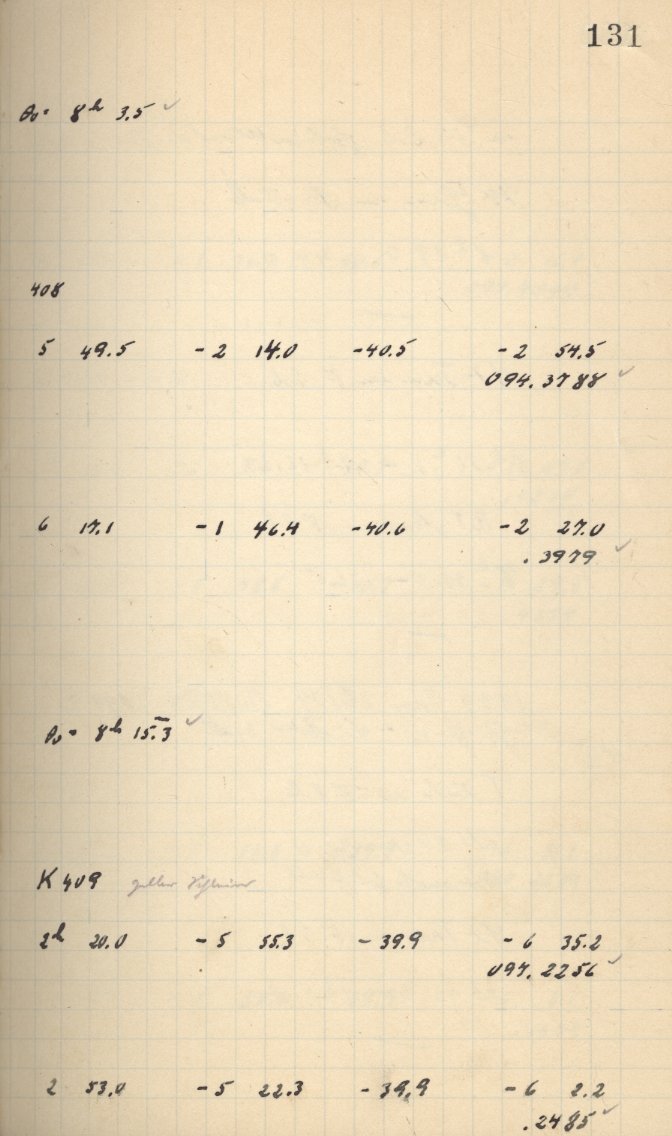 131
θ₀ = 8ʰ 3.5 ✓
408
5 49.5 -2 14.0 -40.5 -2 54.5
094.3788 ✓
6 17.1 -1 46.4 -40.6 -2 27.0
.3979 ✓
θ₀ = 8ʰ 15.3 ✓
K 409
2ʰ 20.0 -5 55.3 -39.9 -6 35.2
097.2256 ✓
2 53.0 -5 22.3 -39.9 -6 2.2
.2485 ✓